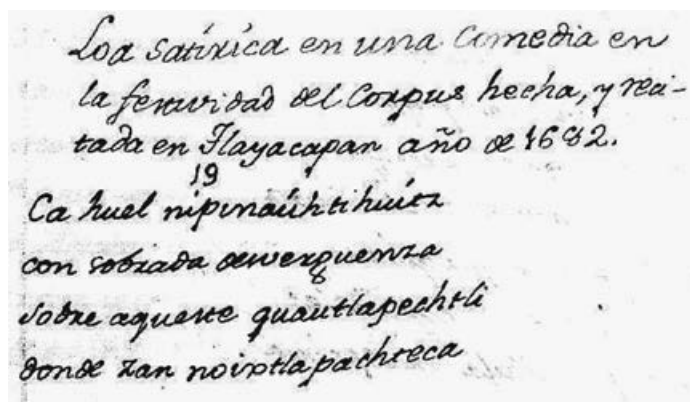 Loa satirica en una Comedia en
la festividad del Corpus hecha, y reci-
tada en Tlayacapan año de 1682.
19
Ca huel nipinaùhtihuitz
con sobrada desverguenza
sobre aqueste quautlapechtli
donde zan noixtlapachteca